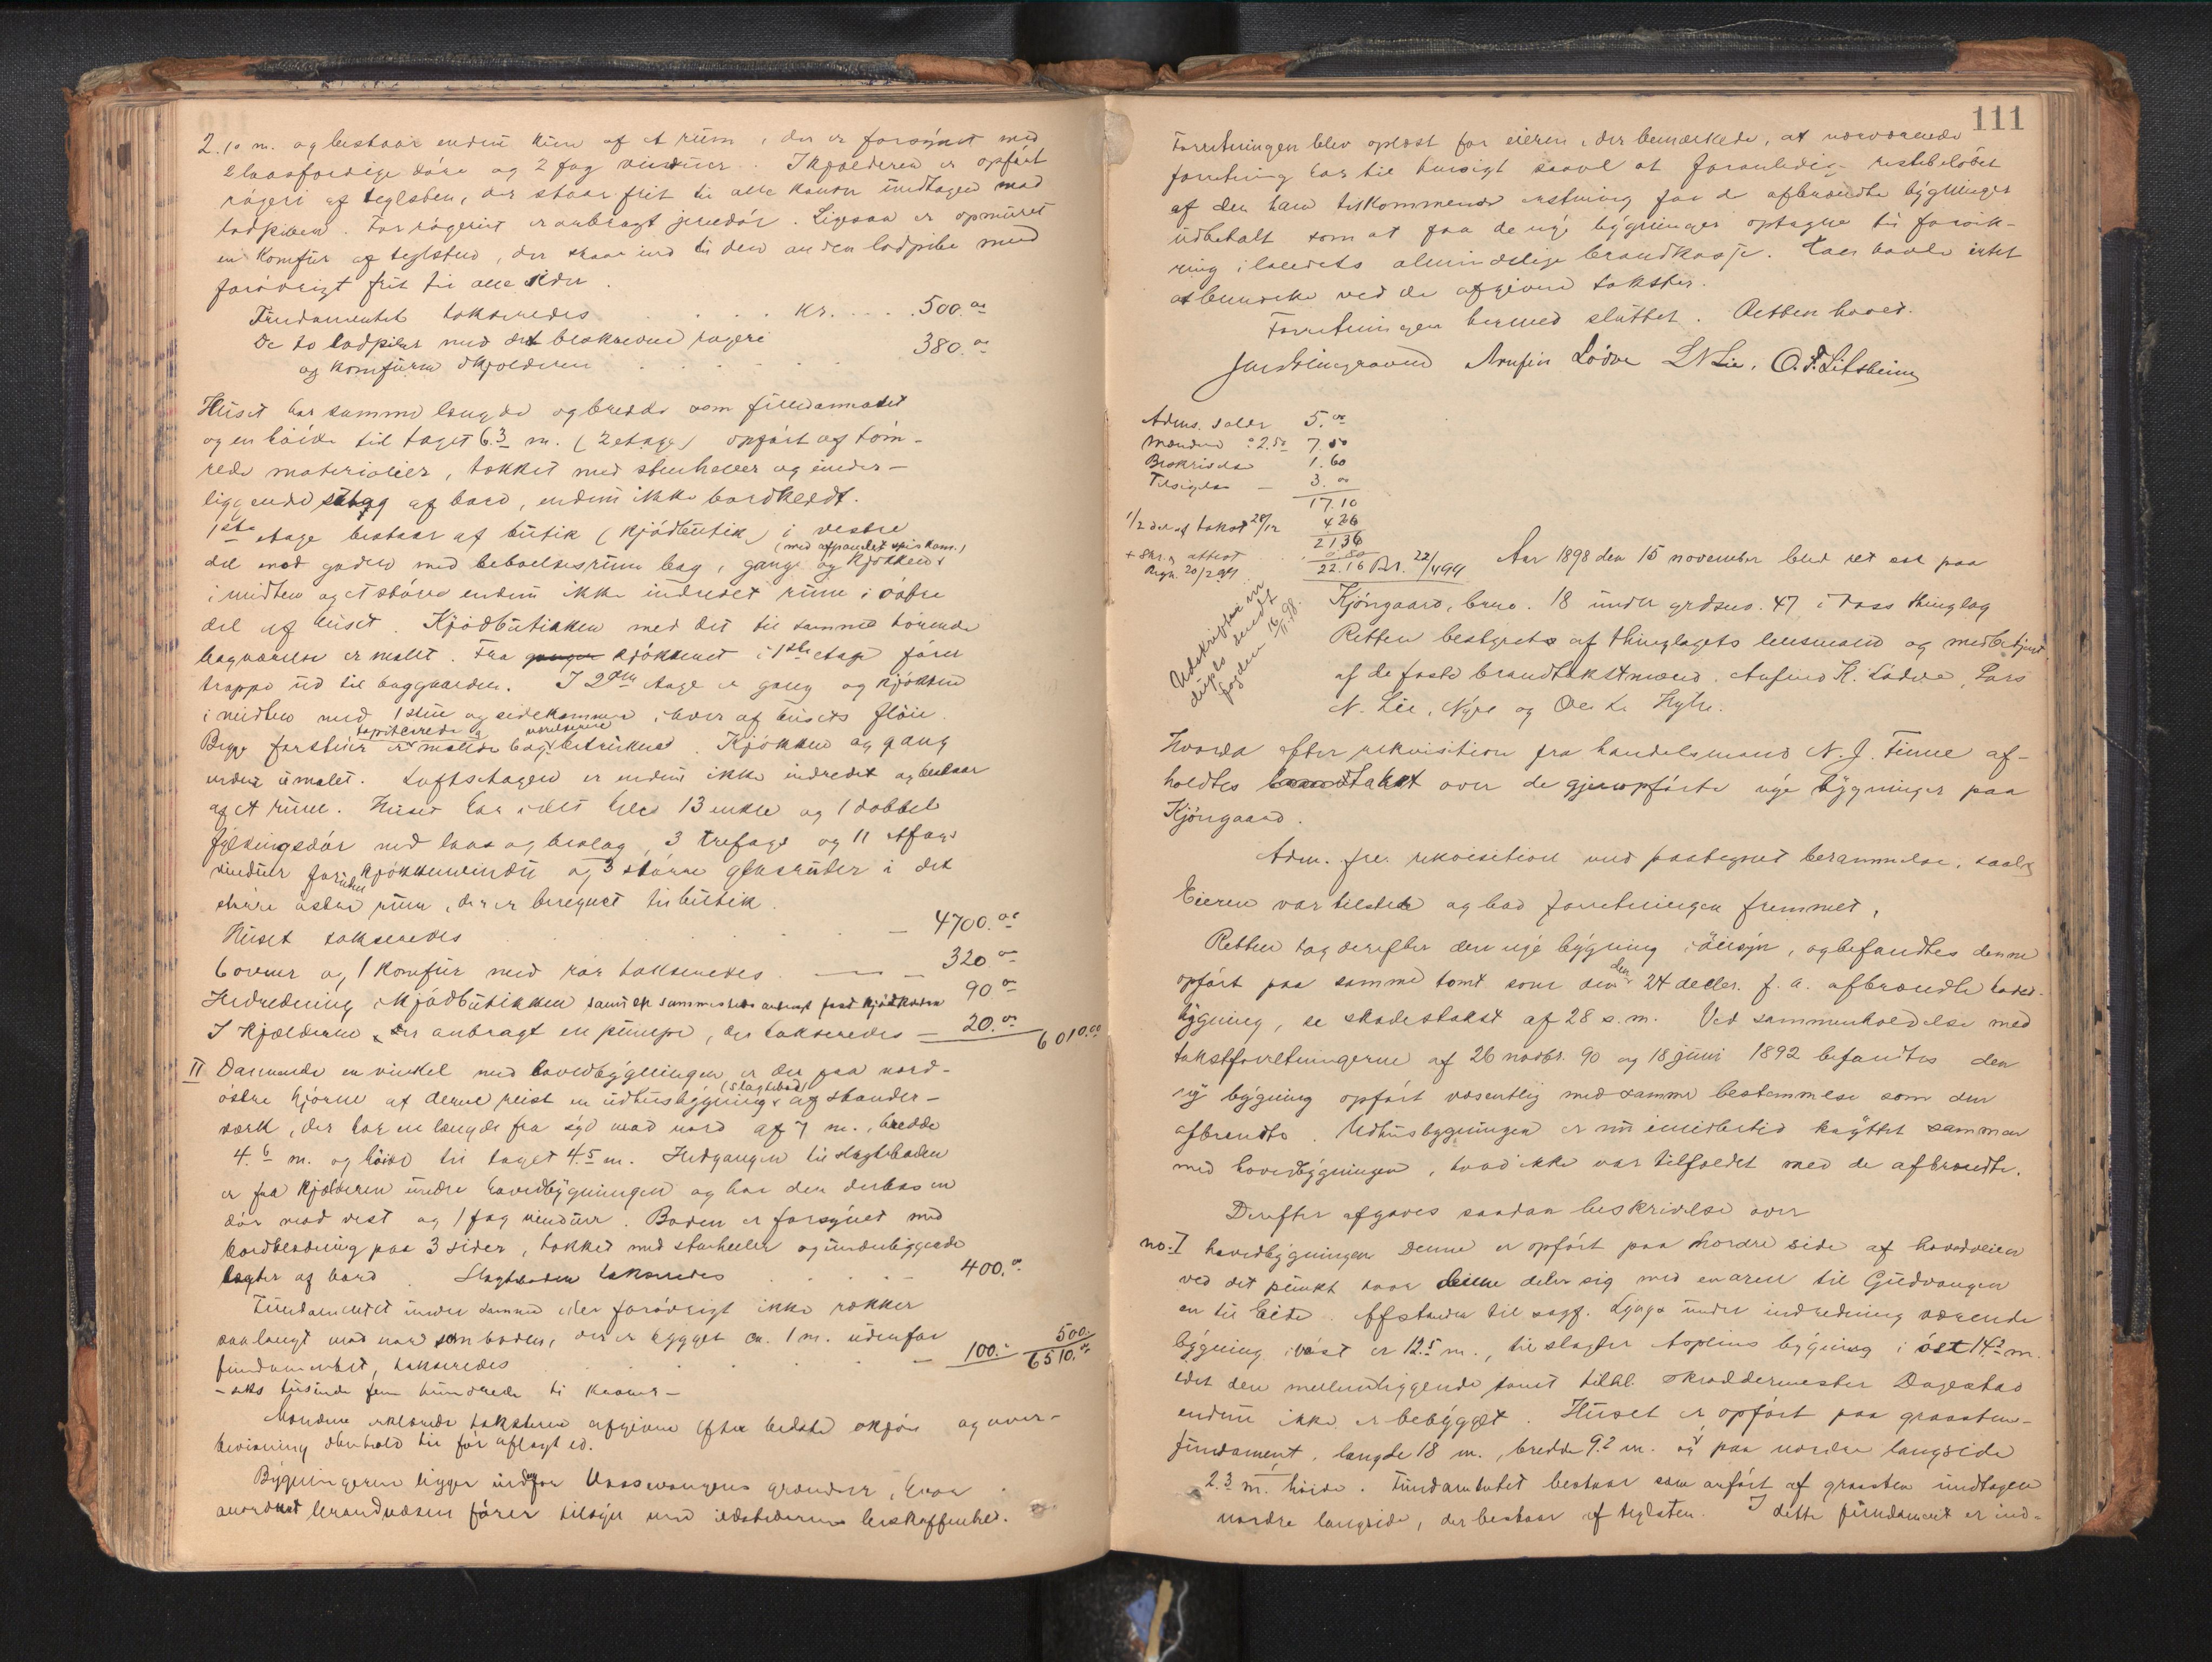 2.10 m. og bestaar endnu kun af et rum, der er forsynet med
2 laasfærdige döre og 2 fag vinduer. I kjælderen er opfört
rögeri af teglsten, der staar frit til alle kanter undtagen mod
lodpiben. For rögeriet er anbragt jerndör. Ligesaa er opmuret
en komfur af teglsten, der staar ind til den anden lodpibe med
forövrigt frit til alle sider.
Fundamentet takseredes kr. 500.00
De to lodpiber med det beskrevne rögeri
og komfuren i kjælderen 380.00
Huset har samme længde og bredde som fundamentet
og en höide til taget 6.3 m. (2 etage) opfört af töm-
rede materialier, tækket med stenheller og under-
liggende sutag af bord, endnu ikke bordklædt.
1ste etage bestaar af butik (kjödbutik) i vestre
del mod gaden med beboelsesrum bag, gang og kjökken
(med afpanelet spiskam.)
i midten og et större endnu ikke indredet rum i östre
del af huset. Kjödbutikken med det til samme hörende
bagværelse er malt. Fra kjökkenet i 1ste etage förer
trappe ud til baggaarden. I 2den etage er gang og kjökken
i midten med 1 stue og sidekammer i hver af husets flöie.
Begge forstuer er malede bag betrukne. Kjökken og gang
tapitserede og værelserne
endnu umalet. Loftsetagen er endnu ikke indredet og bestaar
af et rum. Huset har i det hele 13 enkle og 1 dobbel
fyldingsdör med laas og beslag, 3 trefags og 11 tofags
vinduer foruden kjökkenvindu og 3 större glasruter i det
större östre rum, der er beregnet til butik.
Huset takseredes — 4700.00
6 ovner og 1 komfur med rör takseredes — 320.00
Indredning i kjödbutikken samt en sammesteds anbragt fast kjödkrane 90.00
I kjælderen er anbragt en pumpe, der takseredes — 20.00 6010.00
II Dannende en vinkel med hovedbygningen er der paa nord-
östre hjörne af denne reist en udhusbygning af stænder-
(slagtebod)
værk, der har en længde fra syd mod nord af 7 m., bredde
4.6 m. og höide til taget 4.5 m. Indgangen til slagteboden
er fra kjælderen under hovedbygningen og har den desuden en
dör mod vest og 1 fag vinduer. Boden er forsynet med
bordklædning paa 3 sider, tækket med stenheller og underliggende
lægter af bord. Slagteboden takseredes — 400.00
Fundamentet under samme der forövrigt ikke rækker
saa langt mod nord som boden, der er bygget ca. 1 m. udenfor
fundamentet, takseredes — 100.- 500.-
6510.00
- seks tusinde fem hundrede ti kroner -
Mændene erklærede taksterne afgivne efter bedste skjön og over-
bevisning i henhold til för aflagt ed.
Bygningerne ligger indenfor Vossevangens grænser, hvor
anordnet brandvæsen förer tilsyn med ildstedernes beskaffenhed.
111
Forretningen blev oplæst for eieren, der bemærkede, at nærværende
forretning har til hensigt saavel at foranledige restebelöbet
af den ham tilkommende erstatning for de afbrændte bygninger
udbetalt som at faa de nye bygninger optagne til forsik-
ring i landets almindelige brandkasse. Han havde intet
at bemærke ved de afgivne takster.
Forretningen hermed sluttet. Retten hævet.
Anfin Lödve L N Lie. O. T. Litsheim
Adms. salær 5.00
Mændene à 2.50 7.50
Beskrivelse 1.60
Tilsigelse — 3.00
17.10
1/2 del af takst 28/12 4 26
21 36
+ Skr. attest 0.80
Regn. 20/2 99 22.16 Bet. 22/4 99
Udskriften in
duplo sendt
fogden 16/11 98.
Aar 1898 den 15 november blev ret sat paa
Kjöngaard, brno. 18 under grdsno. 47 i Voss thinglag
Retten bestyredes af thinglagets lensmand og medbetjent
af de faste brandtakstmænd. Anfind K. Lödve, Lars
N. Lie, Nyre og Ole L. Hylre.
Hvorda efter rekvisition fra handelsmand N. J. Finne af-
holdtes takst over de gjenopförte nye bygninger paa
Kjöngaard.
Adm. frem. rekvisition med paategnet berammelse, saal.
Eieren var tilstede og bad forretningen fremmet.
Retten tog derefter den nye bygning i öiesyn, og befandtes denne
opfört paa samme tomt som den den 24 decbr. f. a. afbrændte hoved-
bygning, se skadestakst af 28 s. m. Ved sammenholdelse med
takstforretningerne af 26 novbr. 90 og 18 juni 1892 befandtes den
ny bygning opfört væsentlig med samme bestemmelse som den
afbrændte. Udhusbygningen er nu imidlertid knyttet sammen
med hovedbygningen, hvad ikke var tilfældet med de afbrændte.
Derefter afgaves saadan beskrivelse over
no. I hovedbygningen Denne er opfört paa nordre side af hovedveien
ved det punkt hvor denne deler sig med en arm til Gudvangen
en til Eide. Afstanden til sagf. Lynges under indredning værende
bygning i vest er 12.5 m., til slagter Asplins bygning i öst 14.2 m.
idet den mellemliggende tomt tilhl. skræddermester Dagestad
endnu ikke er bebygget. Huset er opfört paa graasten-
fundament, længde 18 m., bredde 9.2 m. og paa nordre langside
2.3 m. höide. Fundamentet bestaar som anfört af graasten undtagen
nordre langside, der bestaar af teglsten. I dette fundament er ind-